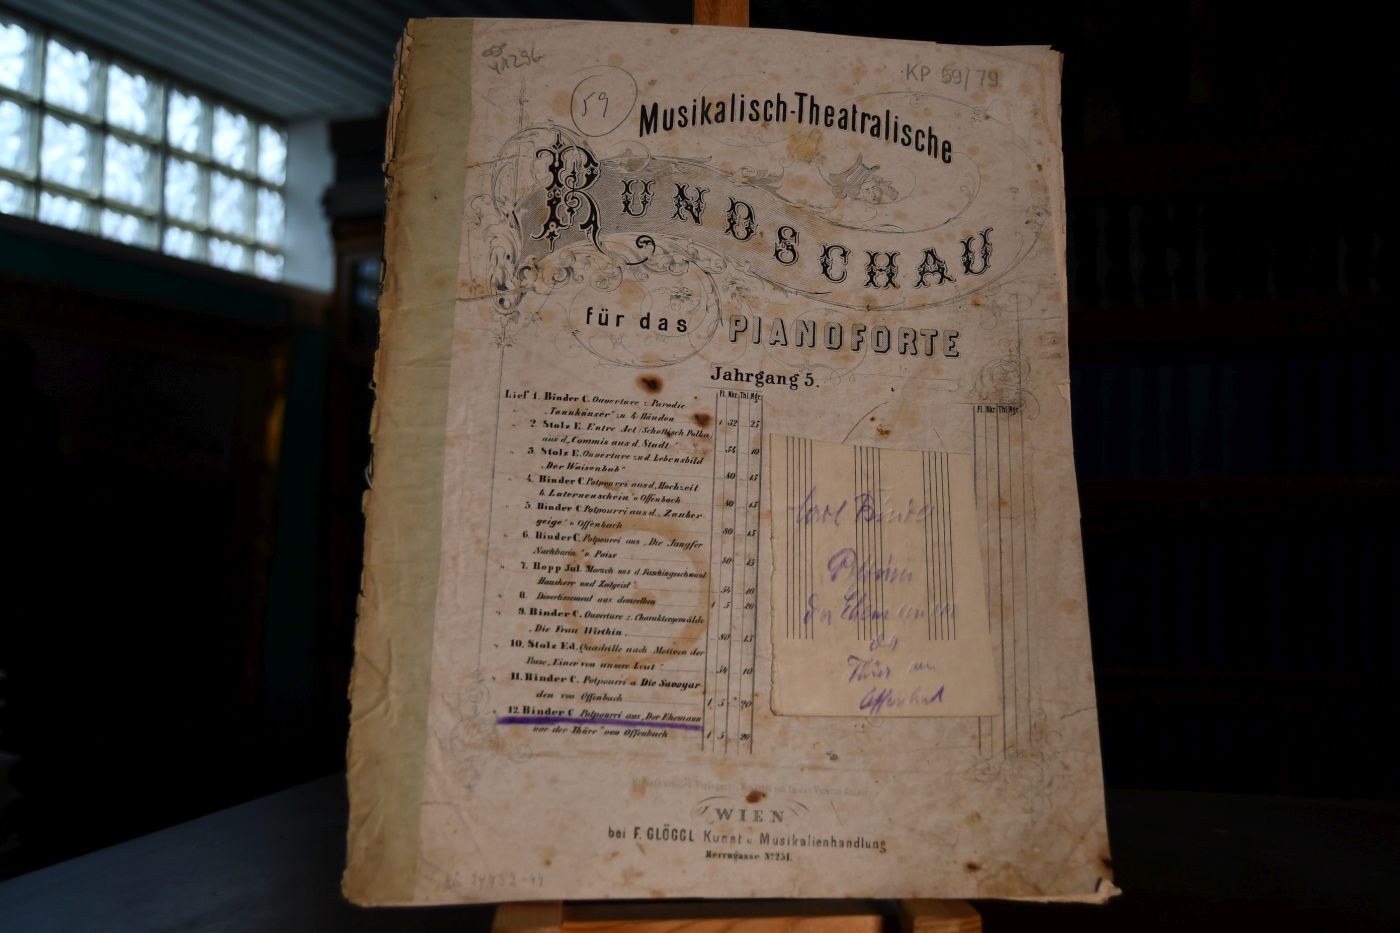 41296
59
KP 59/79
Musikalisch-Theatralische
RUNDSCHAU
für das PIANOFORTE
Jahrgang 5.
Fl. Nkr. Thl. Ngr.
Lief 1. Binder C. Ouverture z. Parodie
„Tannhäuser" zu 4 Händen 1 52 25
„ 2. Stolz E. Entre Act (Schottisch Polka
aus d. „Commis aus d. Stadt." 54 10
„ 3. Stolz E. Ouverture z. d. Lebensbild
„Der Waisenbub" 80 15
„ 4. Binder C. Potpourri aus d. „Hochzeit
b. Laternenschein" v. Offenbach 80 15
„ 5. Binder C. Potpourri aus d. „Zauber-
geige" v. Offenbach 80 15
„ 6. Binder C. Potpourri aus „Die Jungfer
Nachbarin" v. Poise 80 15
„ 7. Hopp Jul. Marsch aus d. Faschingsschwank
Hausherr und Zeitgeist" 54 10
„ 8. Divertissement aus demselben 1 5 20
„ 9. Binder C. Ouverture z. Charaktergemälde
„Die Frau Wirthin. 80 15
„ 10. Stolz Ed. Quadrille nach Motiven der
Posse „Einer von unsere Leut" 54 10
„ 11. Binder C. Potpourri a Die Savoyar
den von Offenbach 1 5 20
„ 12. Binder C Potpourri aus „Der Ehemann
vor der Thüre" von Offenbach 1 5 20
Fl. Nkr. Thl. Ngr.
Carl Binder
der Ehemann
Offenbach
WIEN
bei F. GLÖGGL Kunst u Musikalienhandlung
Herrngasse No 251.